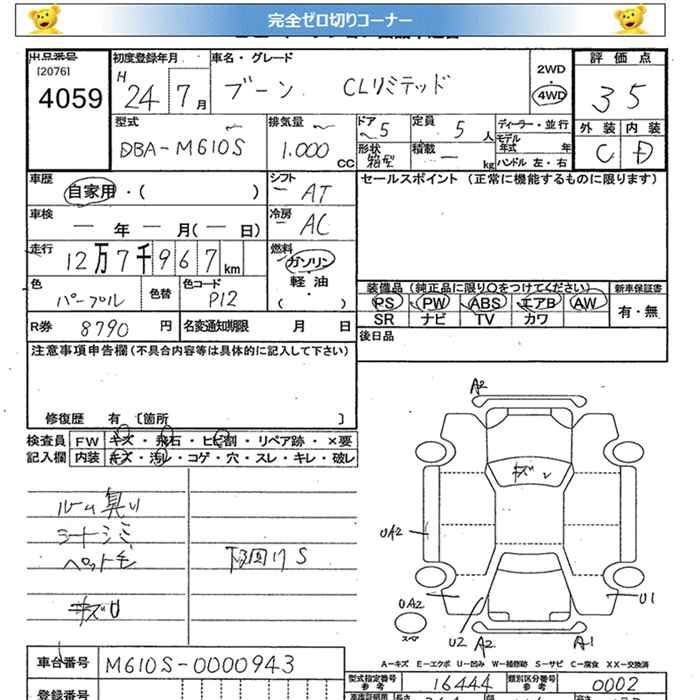 完全ゼロ切りコーナー
出品番号 初度登録年月 車名・グレード 2WD ・ 4WD 評価点
[2076]
4059 H 24年 7月 ブーン CLリミテッド 3 5
型式 排気量 ドア 5 定員 5人 ディーラー・並行 外装 内装
DBA-M610S 1.000 CC 形状 箱型 積載 - kg モデル年式 年 C D
ハンドル 左・右
車歴 シフト セールスポイント (正常に機能するものに限ります)
自家用・( ) AT
車検 冷房
― 年 ― 月(― 日) AC
走行 燃料
12万7千967km ガソリン
軽油・( )
色 色替 色コード 装備品(純正品に限り○をつけてください) 新車保証書
パープル P12 PS PW ABS エアB AW 有・無
SR ナビ TV カワ
R券 8790 円 名変通知期限 月 日 後日品
注意事項申告欄(不具合内容等は具体的に記入して下さい)
修復歴 有 [箇所 ]
検査員 FW キズ・飛石・ヒビ割・リペア跡・×要
記入欄 内装 キズ・汚レ・コゲ・穴・スレ・キレ・破レ
ルーム臭い
シートシミ
ペット毛 下回りS
キズU
A2
キズ
UA2
UA2
スペア
U2
A2
A1
U1
A-キズ E-エクボ U-凹み W-補修跡 S-サビ C-腐食 XX-交換済
車台番号 M610S-0000943
型式指定番号 参考 16444 類別区分番号 参考 0002
登録番号